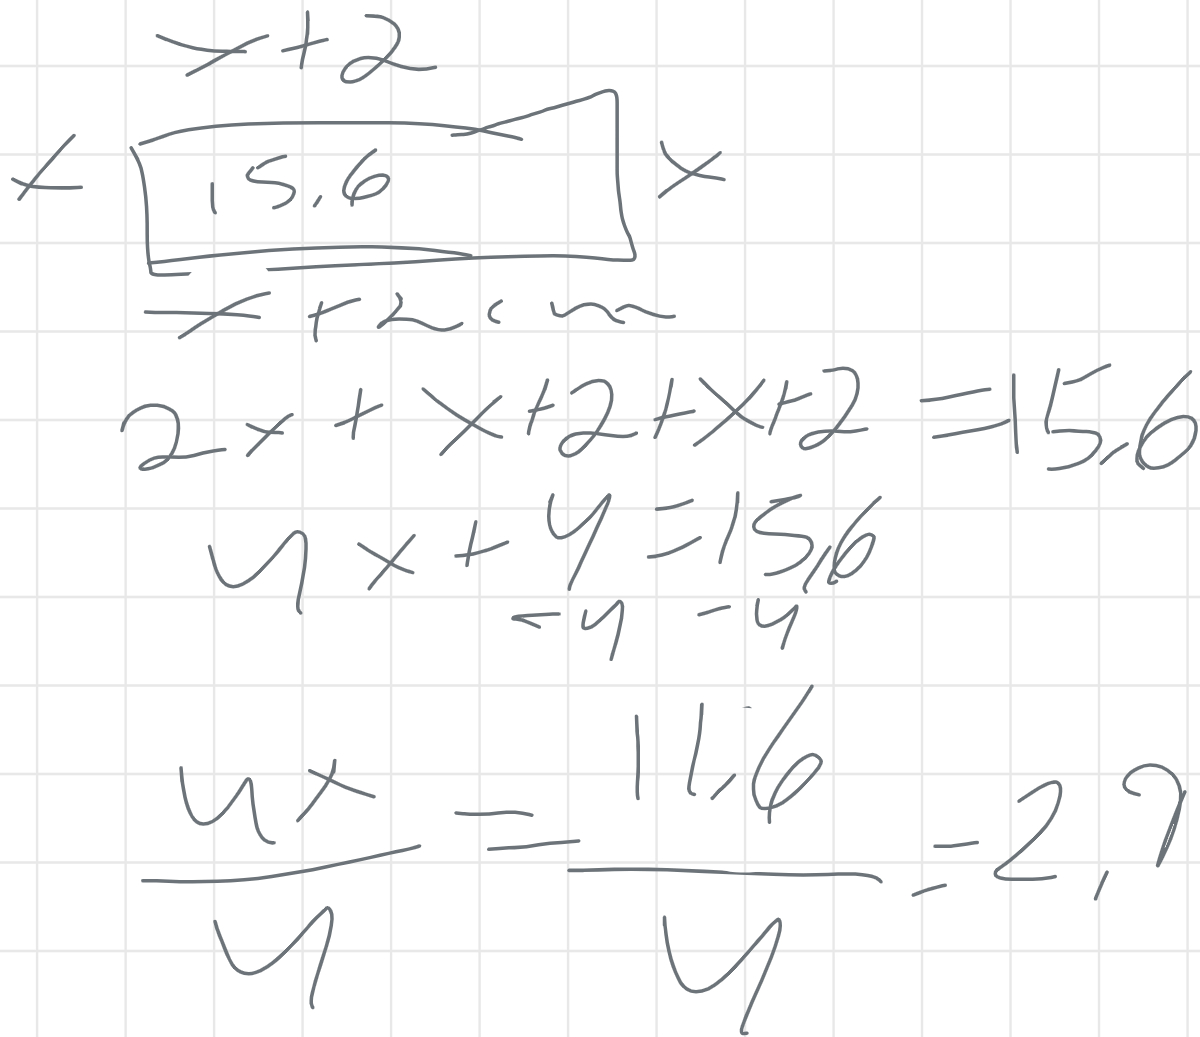 x+2
x 15,6 x
x+2cm
2x+x+2+x+2=15,6
4x+4=15,6
-4 -4
4x/4 = 11,6/4 = 2,9